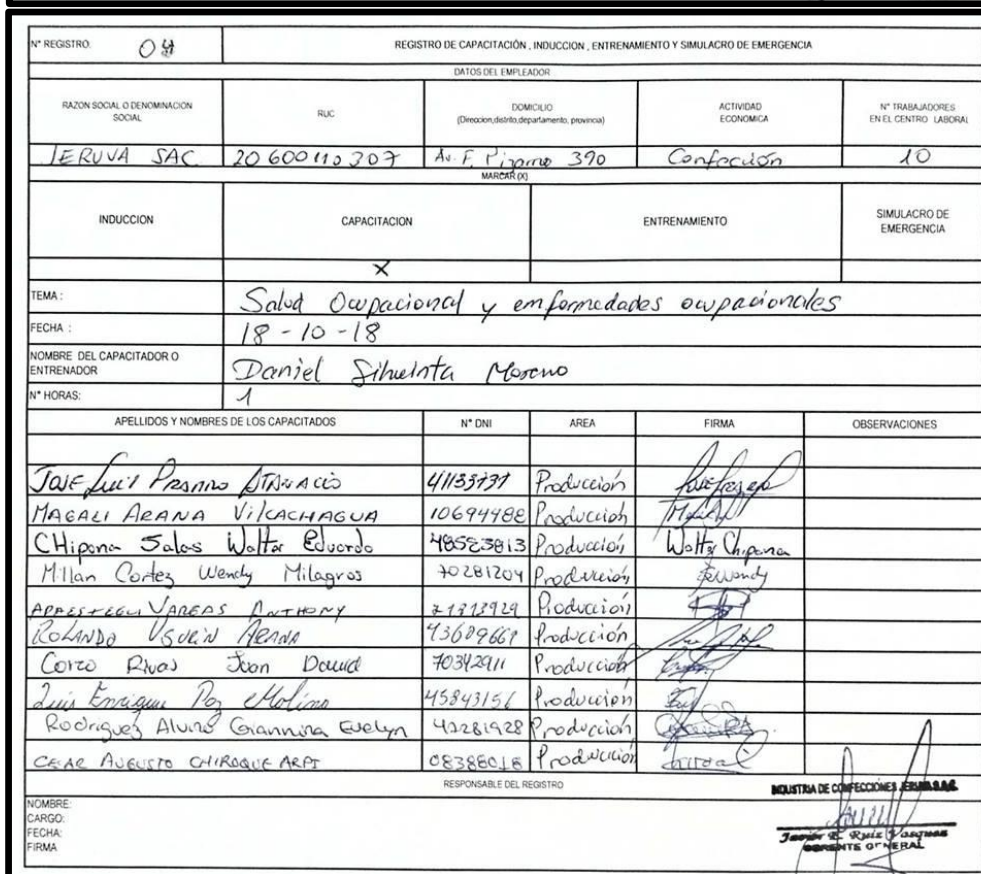 N° REGISTRO. 04 REGISTRO DE CAPACITACIÓN , INDUCCION , ENTRENAMIENTO Y SIMULACRO DE EMERGENCIA
DATOS DEL EMPLEADOR
RAZON SOCIAL O DENOMINACION SOCIAL RUC DOMICILIO (Direccion,distrito,departamento, provincia) ACTIVIDAD ECONOMICA N° TRABAJADORES EN EL CENTRO LABORAL
JERUVA SAC 20600110307 Av. F. Pizarro 390 Confección 10
MARCAR (X)
INDUCCION CAPACITACION ENTRENAMIENTO SIMULACRO DE EMERGENCIA
X
TEMA : Salud Ocupacional y enfermedades ocupacionales
FECHA : 18-10-18
NOMBRE DEL CAPACITADOR O ENTRENADOR Daniel Sihuinta Moreno
N° HORAS: 1
APELLIDOS Y NOMBRES DE LOS CAPACITADOS N° DNI AREA FIRMA OBSERVACIONES
JOSE Luis Producción
MAGALI ARANA VilCACHAGUA 10694488 Producción
CHipana Salas Walter Eduardo 48523813 Producción Walter Chipana
Millan Cortez Wendy Milagros 70281204 Producción
VARGAS ANTHONY Producción
ROLANDO ARANA 43689661 Producción
Corzo Rivas Juan David 70342911 Producción
Luis Enrique Paz Molina 45843156 Producción
Rodriguez Giannina Evelyn Producción
CESAR AUGUSTO CHIROQUE ARPI 08388018 Producción
RESPONSABLE DEL REGISTRO
NOMBRE:
CARGO:
FECHA:
FIRMA
INDUSTRIA DE CONFECCIONES JERUVA S.A.C.
Javier R. Ruiz Vasquez
GERENTE GENERAL